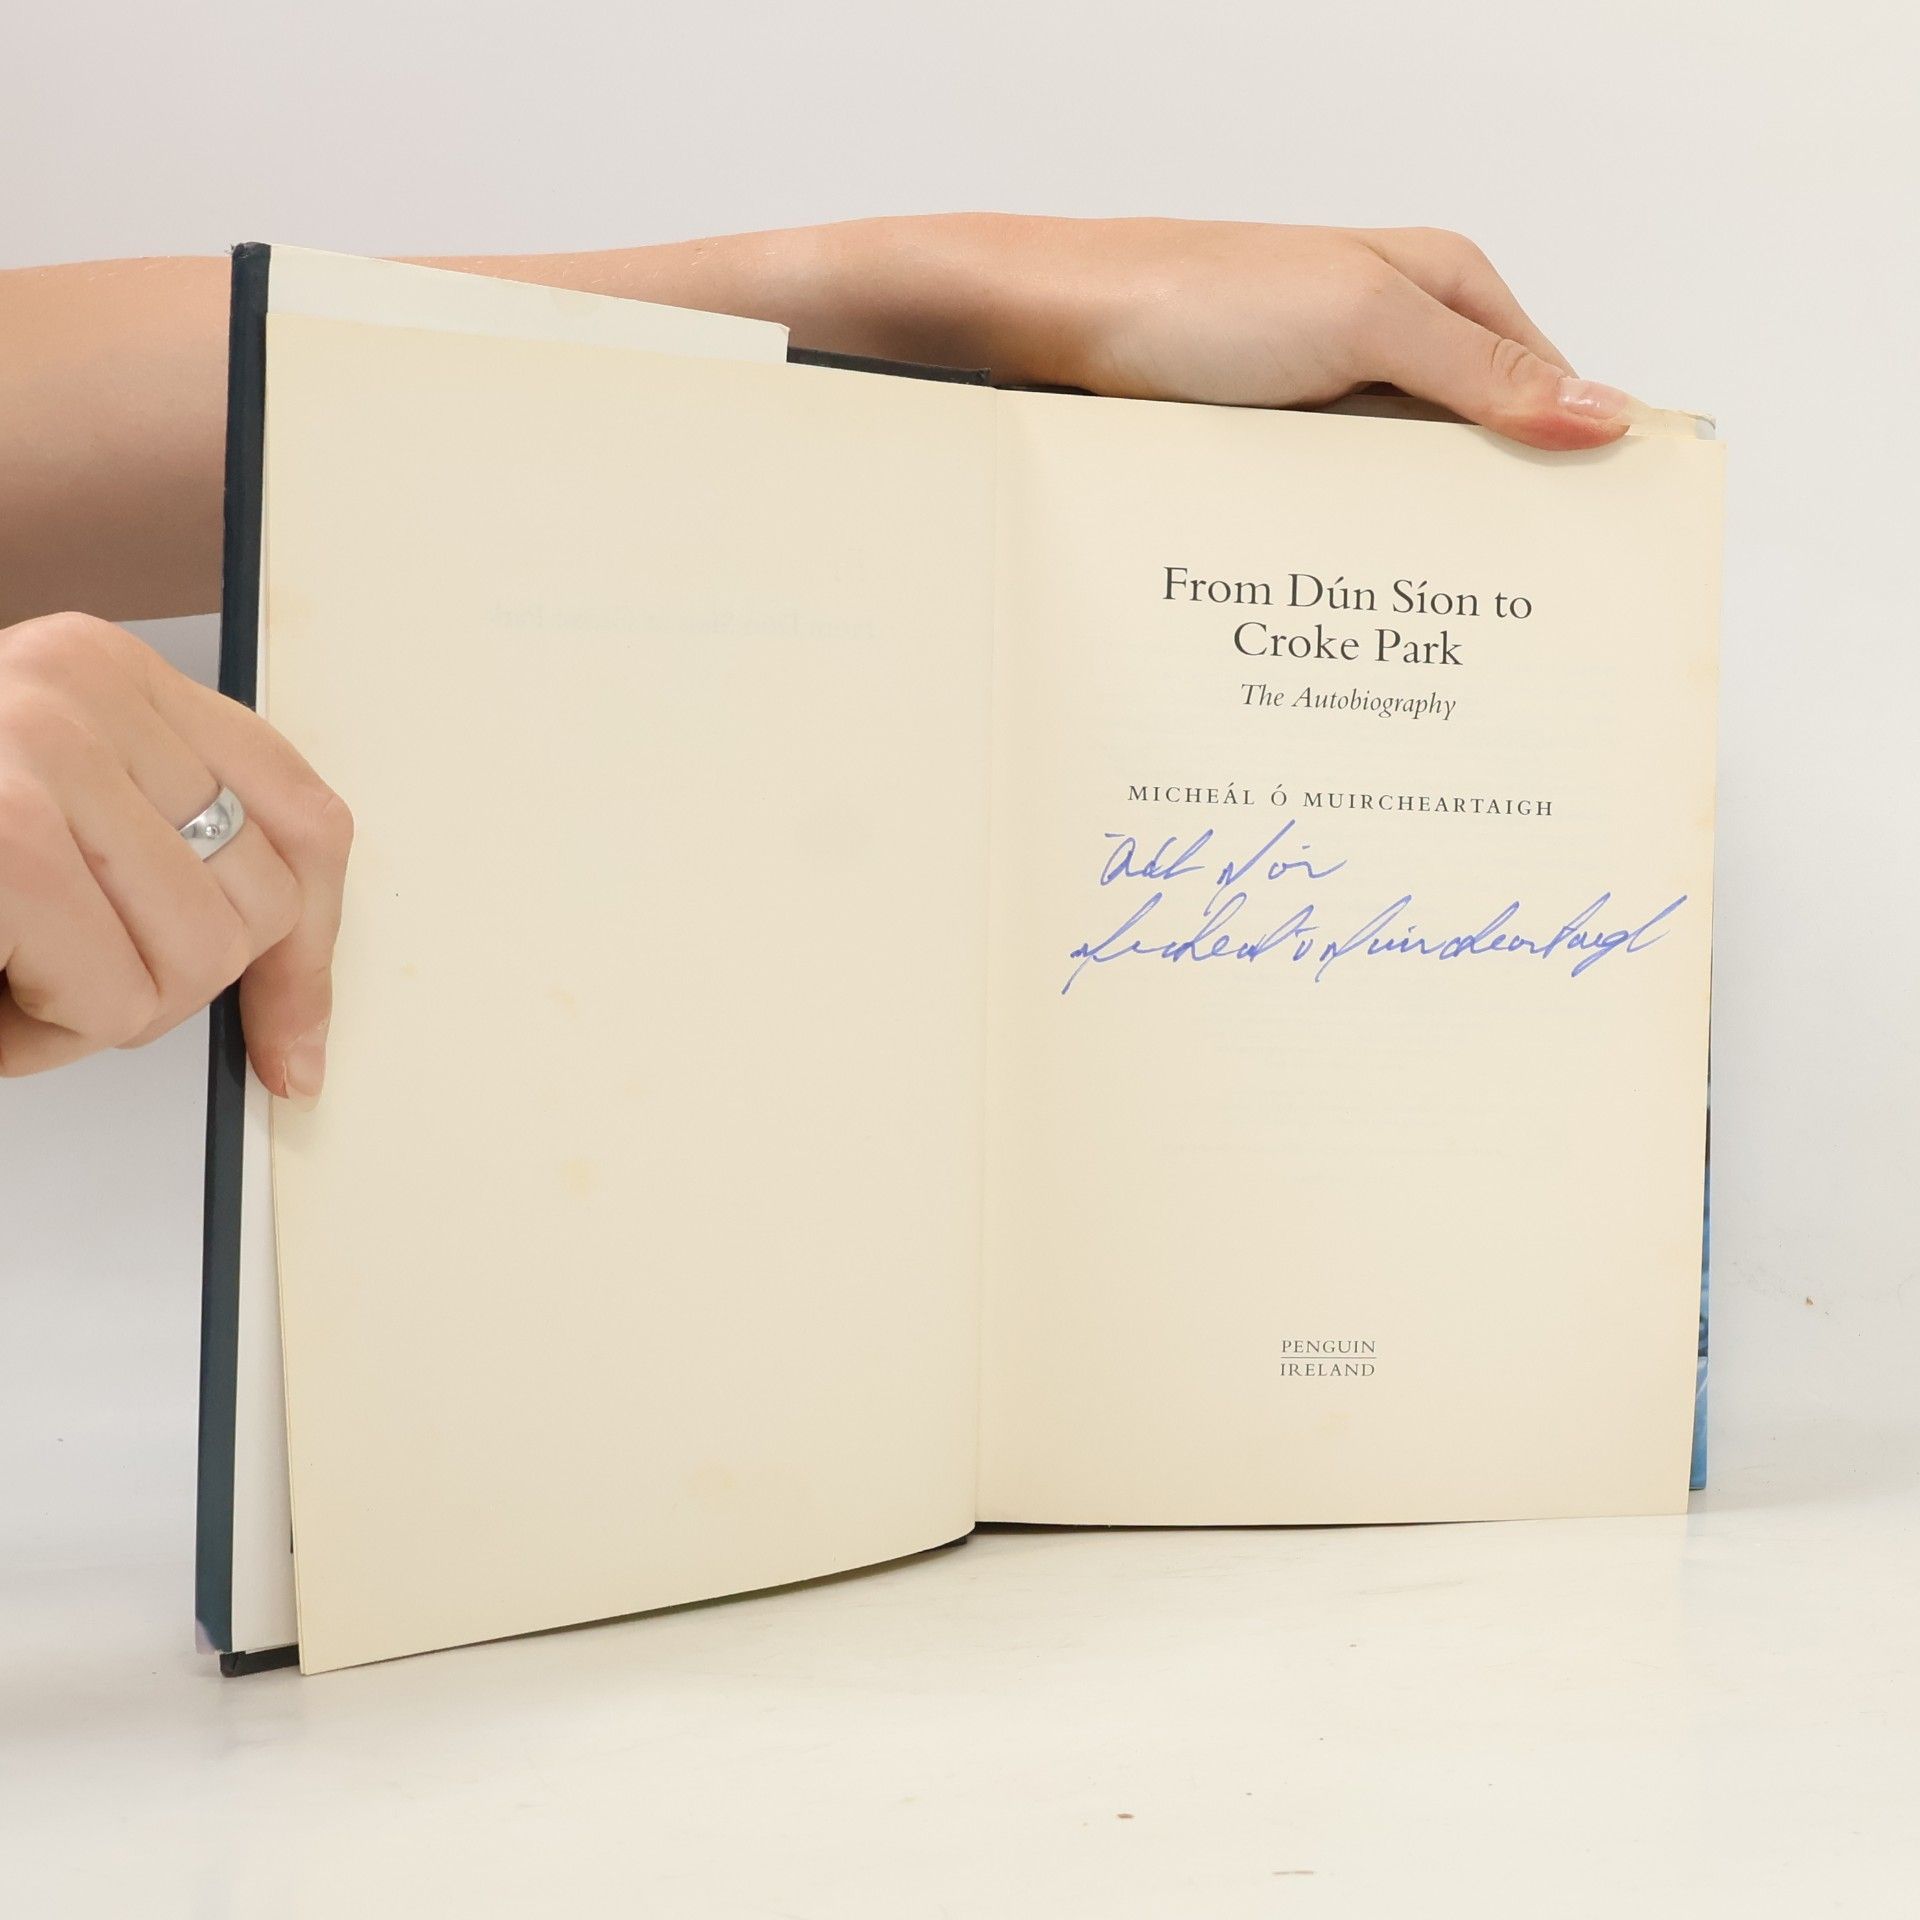 From Dún Síon to
Croke Park
The Autobiography
MICHEÁL Ó MUIRCHEARTAIGH
Ádh Mór
Micheál Ó Muircheartaigh
PENGUIN
IRELAND